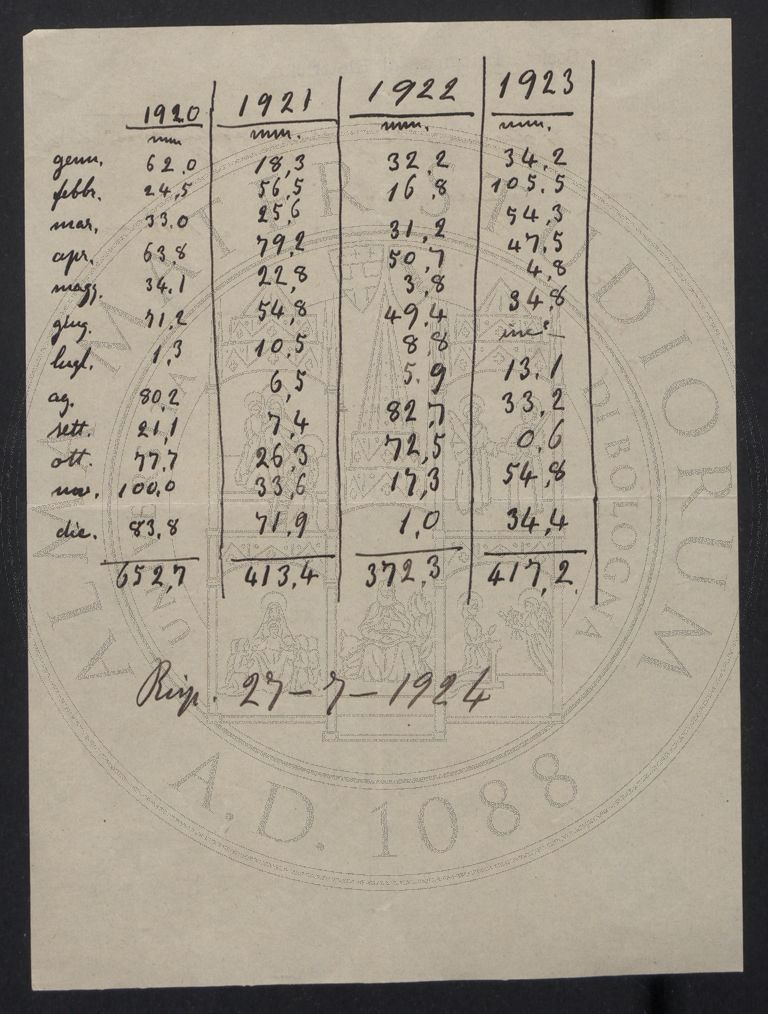 1920 1921 1922 1923
mm mm. mm. mm.
genn. 62,0 18,3 32,2 34,2
febbr. 24,5 56,5 16,8 105,5
mar. 33,0 25,6 31,2 54,3
apr. 63,8 79,2 50,7 47,5
magg. 34,1 22,8 3,8 4,8
giug. 71,2 54,8 49,4 34,8
lugl. 1,3 10,5 8,8
ag. 80,2 6,5 5,9 13,1
sett. 21,1 7,4 82,7 33,2
ott. 77,7 26,3 72,5 0,6
nov. 100,0 33,6 17,3 54,8
dic. 83,8 71,9 1,0 34,4
652,7 413,4 372,3 417,2
Risp. 27-7-1924
ALMA MATER STUDIORUM
DI BOLOGNA
A.D. 1088